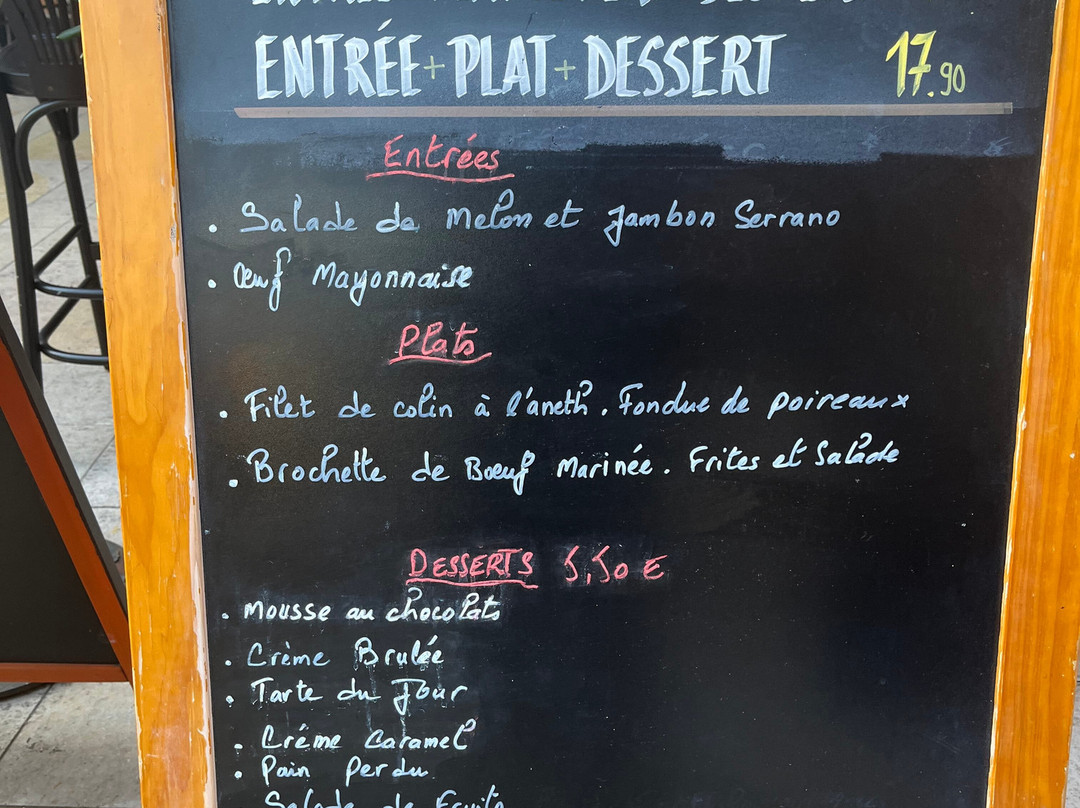 ENTRÉE + PLAT + DESSERT 17.90
Entrées
. Salade de Melon et Jambon Serrano
. Œuf Mayonnaise
Plats
. Filet de colin à l'aneth. Fondue de poireaux
. Brochette de Bœuf Marinée. Frites et Salade
DESSERTS 5,50 €
. Mousse au chocolats
. Crème Brulée
. Tarte du Jour
. Créme Caramel
. Pain perdu
Salade de Fruits